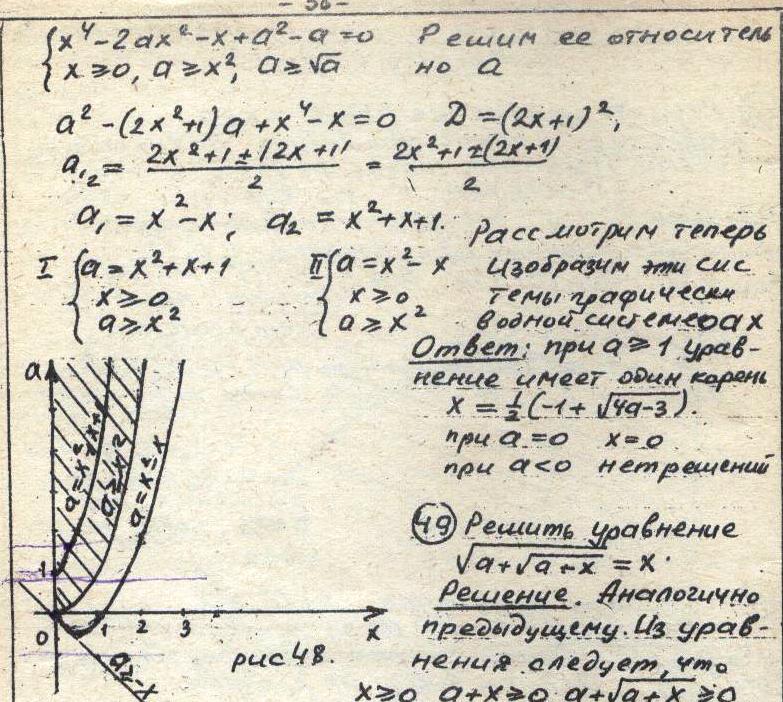 - 36 -
{ x⁴-2ax²-x+a²-a=0 Решим ее относитель
x≥0, a≥x², a≥√a но a
a²-(2x²+1)a+x⁴-x=0 D=(2x+1)²,
a₁,₂= (2x²+1±|2x+1|)/2 = (2x²+1±(2x+1))/2
a₁=x²-x; a₂=x²+x+1. Рассмотрим теперь
I { a=x²+x+1 II { a=x²-x Изобразим эти сис
x≥0 x≥0 темы графически
a≥x² a≥x² в одной системе oax
Ответ: при a≥1 урав-
нение имеет один корень
x=½(-1+√(4a-3)).
при a=0 x=0
при a<0 нет решений
a
a=x²+x+1
a≥x²
a=x²-x
1
0 1 2 3 x
a≥-x
рис 48.
(49) Решить уравнение
√(a+√(a+x))=x.
Решение. Аналогично
предыдущему. Из урав-
нения следует, что
x≥0 a+x≥0 a+√(a+x)≥0